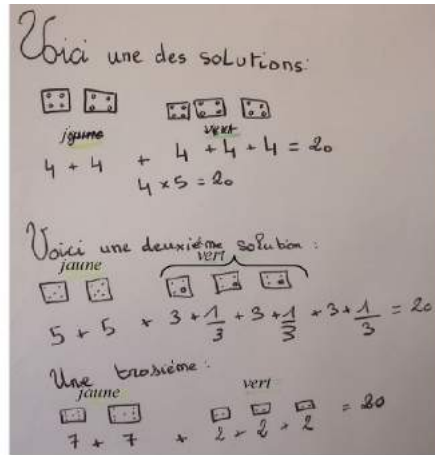 Voici une des solutions:
jaune vert
4 + 4 + 4 + 4 + 4 = 20
4 × 5 = 20
Voici une deuxième solution :
jaune vert
5 + 5 + 3 + 1/3 + 3 + 1/3 + 3 + 1/3 = 20
Une trosième :
jaune vert
7 + 7 + 2 + 2 + 2 = 20